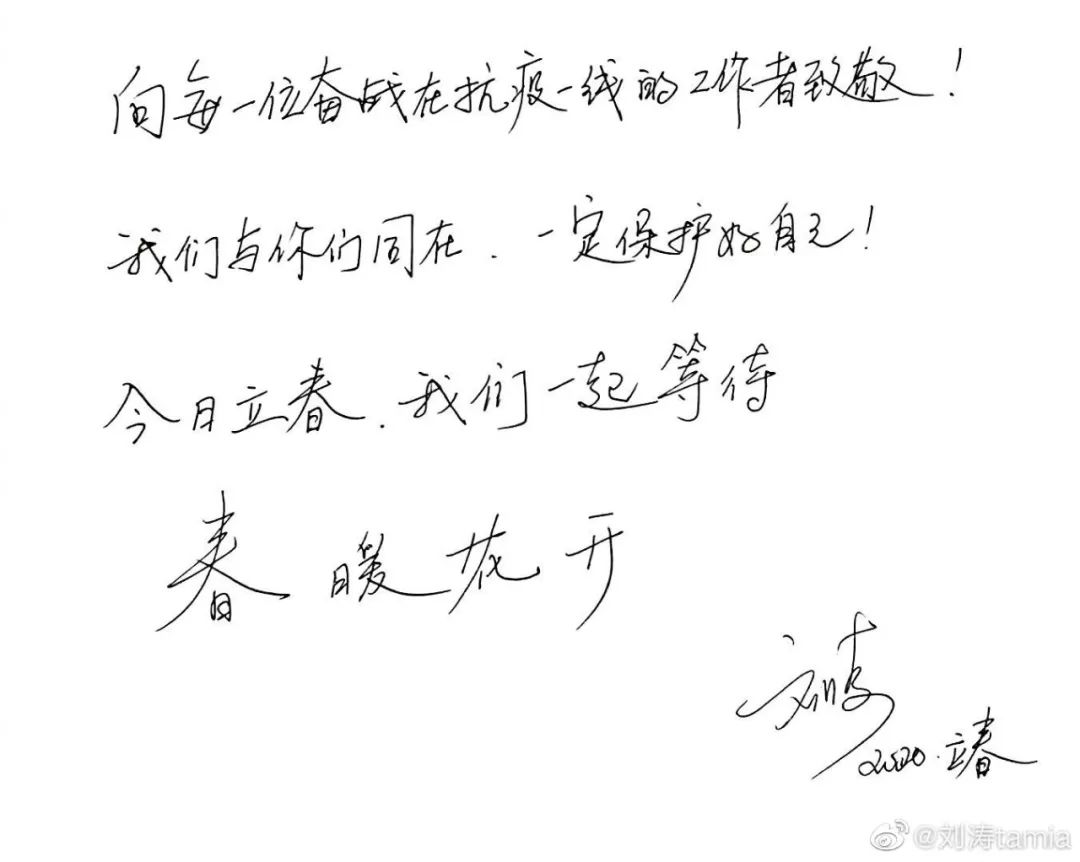 向每一位奋战在抗疫一线的工作者致敬！
我们与你们同在．一定保护好自己！
今日立春．我们一起等待
春暖花开
刘涛
2020.立春
@刘涛tamia